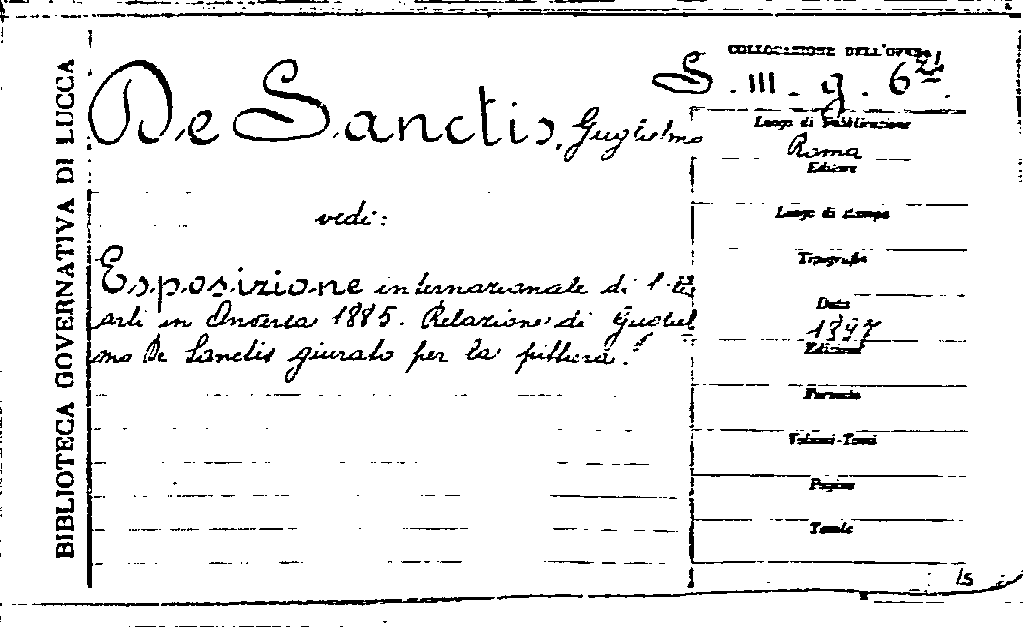 BIBLIOTECA GOVERNATIVA DI LUCCA
COLLOCAZIONE DELL'OPERA
S. III. g. 6
De Sanctis, Guglielmo
vedi:
Esposizione internazionale di
arti in Anversa 1885. Relazione di Gugliel
mo De Sanctis giurato per la pittura.
Luogo di Pubblicazione
Roma
Editore
Luogo di stampa
Tipografia
Data
Edizione
Formato
Volumi-Tomi
Pagine
Tavole
15